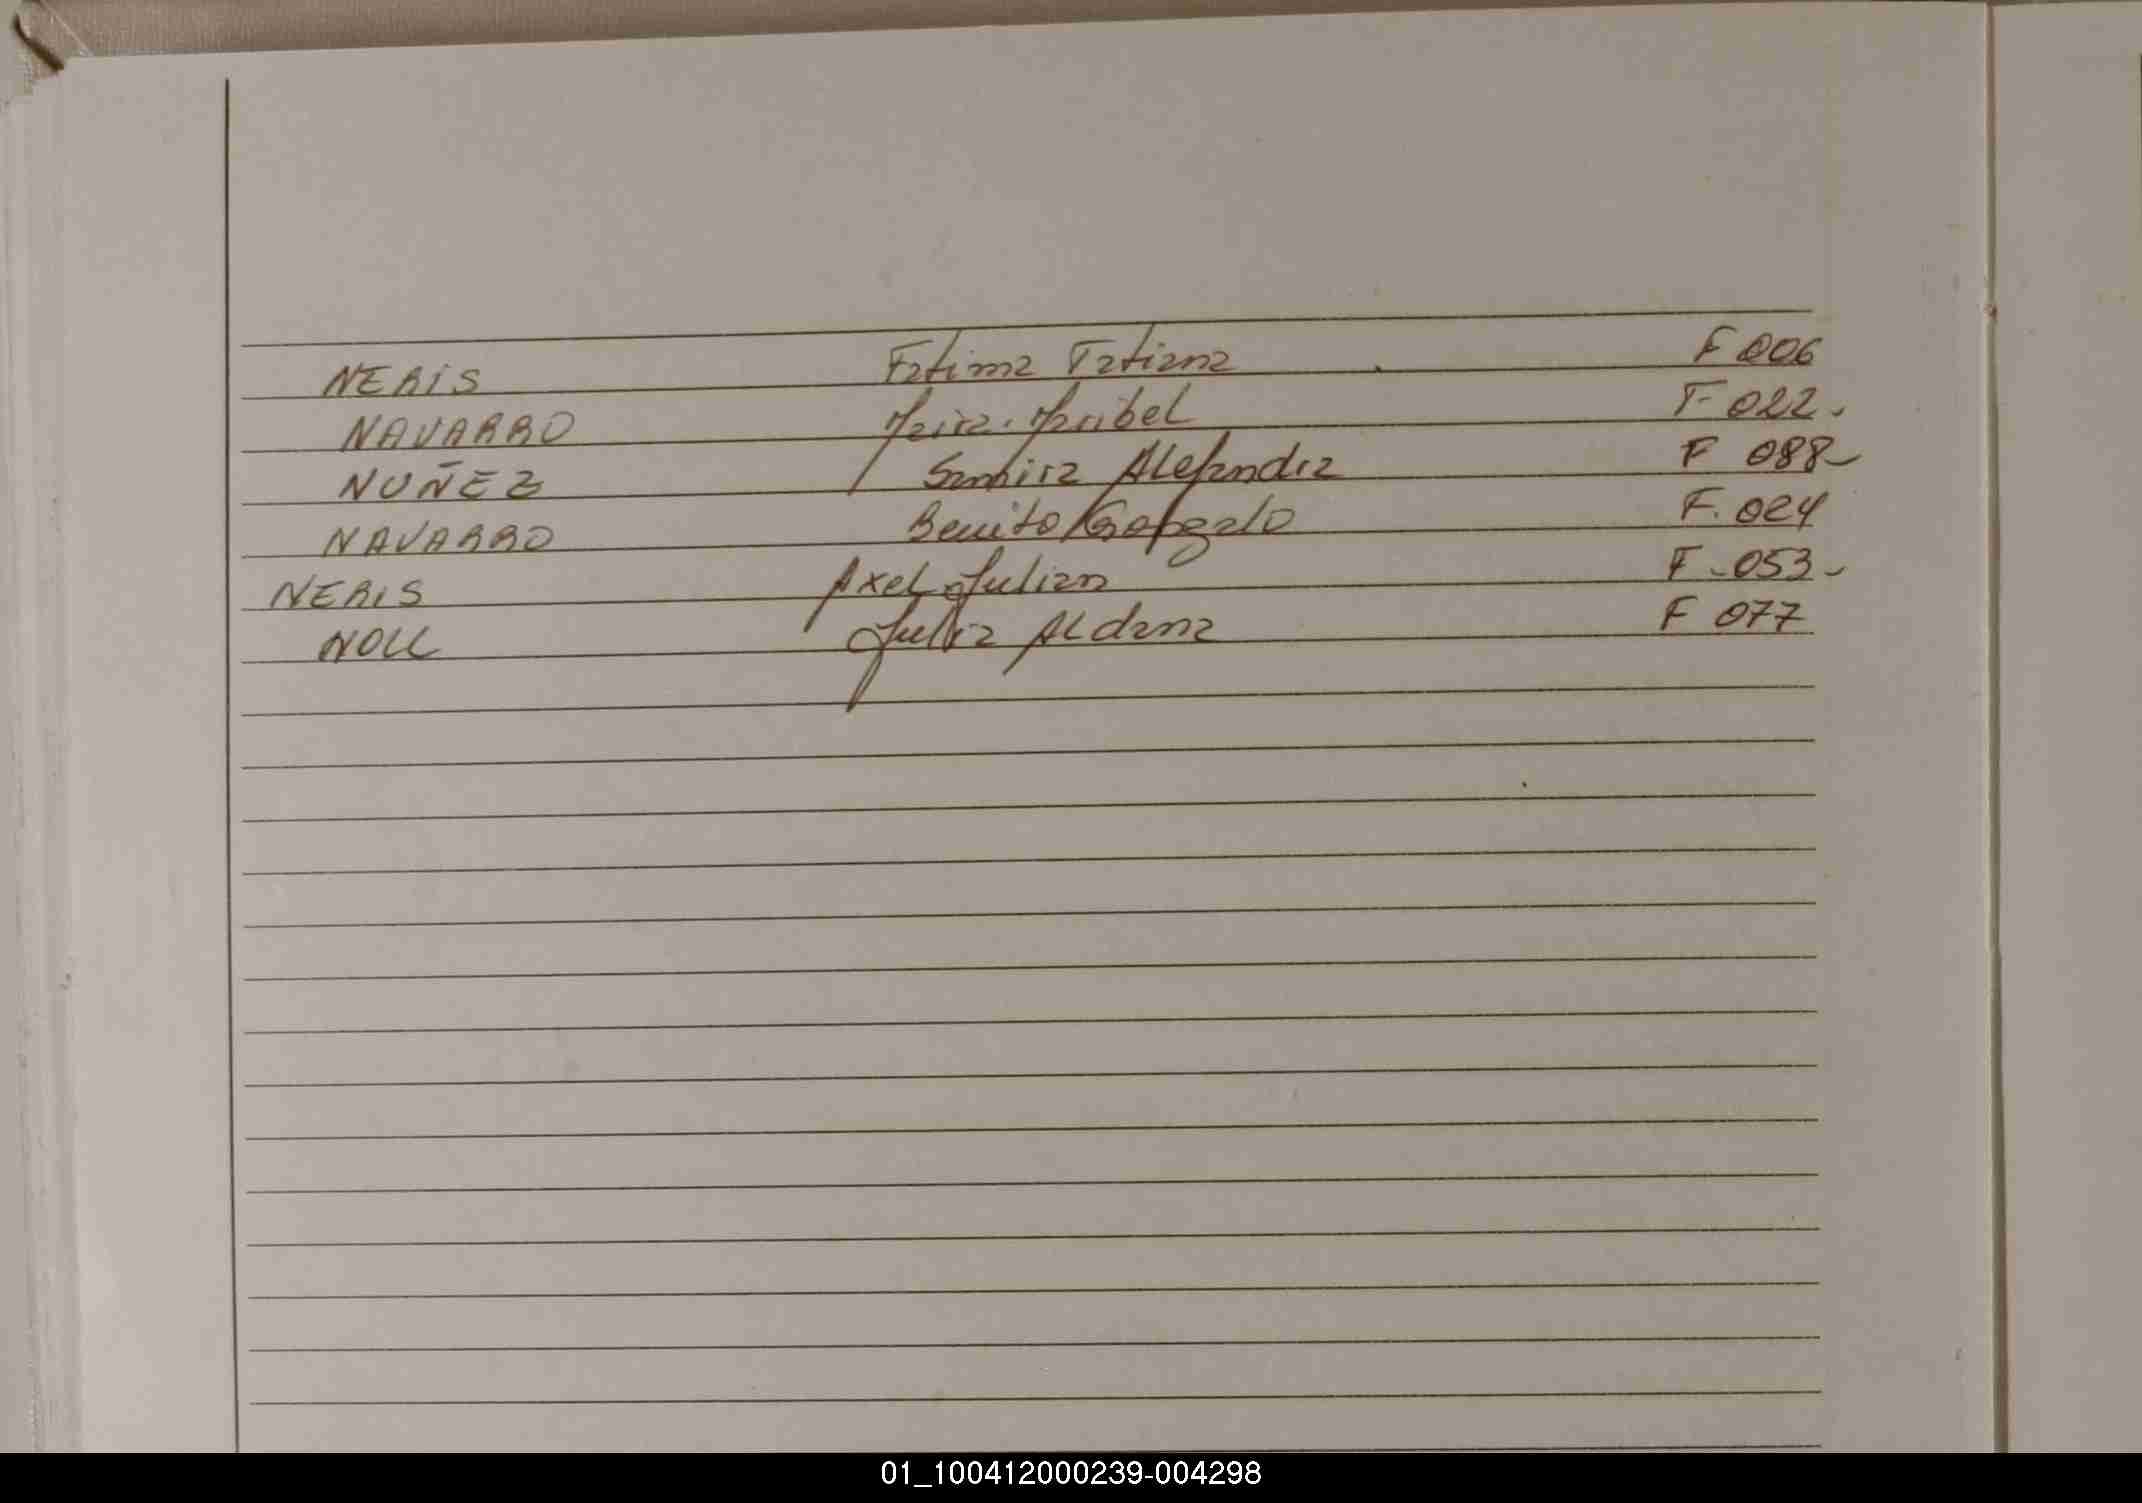 NERIS Fatima Tatiana F 006
NAVARRO Maribel F 022.
NUÑEZ Samira Alejandra F 088-
NAVARRO Benito Gonzalo F. 024
NERIS Axel Julian F-053-
NOLL Julia Aldana F 077
01_100412000239-004298